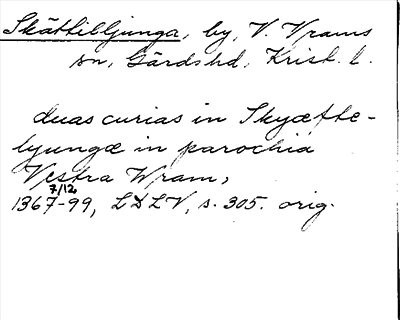 Skättilljunga, by, V. Vrams
sn, Gärds hd, Krist. l.
duas curias in Skyæfte-
lyungæ in parochia
Vestra Wram,
7/12
1367-99, LDLV, s. 305. orig.